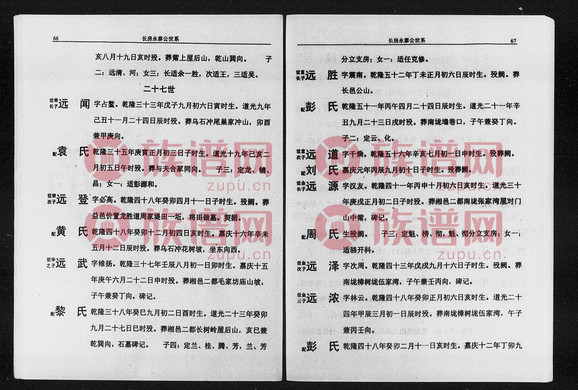 66
长房永寨公世系
亥八月十九日亥时殁。葬紫上屋后山，乾山巽向。 子
二：远清、河；女三：长适余一胜，次适王，三适吴。
二十七世
远闻 字占鳌，乾隆三十三年戊子九月初六日寅时生。道光九年
己丑十一月二十四日辰时殁。葬乌石冲尾巢家冲山，卯酉
兼甲庚向。
配 袁氏 乾隆三十五年庚寅正月初三日子时生。道光十九年己亥二
月初五日午时殁。葬与夫合冢同向。 子三：定龙、辅、
昌；女一：适彭源和。
远登 字必高，乾隆四十八年癸卯四月十一日巳时生。殁阙。葬
益邑价亶龙胜道周家塅田一坵，将田做墓，契据。
配 黄氏 乾隆四十八年癸卯十二月初二日亥时生。嘉庆十六年辛未
五月十二日辰时殁。葬乌石冲花树坡，坐东向西。
远武 字维扬，乾隆三十七年壬辰八月初一日卯时生。嘉庆十五
年庚午六月二十二日申时殁。葬湘邑二都毛家坊庙山坡，
子午兼癸丁向，碑记。
配 黎氏 乾隆三十八年癸巳九月初二日酉时生。道光二十三年癸卯
九月二十七日巳时殁。葬湘邑二都长树岭屋后山，亥巳兼
乾巽向，石墓碑记。 子四：定兰、桂、腾、芳，兰、芳
长房永寨公世系
67
分立支房；女一：适任克修。
远胜 字震南。乾隆五十二年丁未正月初六日辰时生。殁阙。葬
长邑公山。
配 彭氏 乾隆五十一年丙午四月二十四日辰时生。道光二十一年辛
丑九月二十三日戌时殁。葬南珑塘巷口，子午兼癸丁向。
子二：定云、化。
远道 字千乘。乾隆五十六年辛亥七月初一日申时生。殁阙。
配 刘氏 嘉庆元年丙辰九月初十日丑时生。殁葬阙。
远源 字汉友。乾隆四十一年丙申十月初六日寅时生。道光三十
年庚戌正月初二日子时殁。葬湘邑二都南珑张家湾屋对门
山申甯，碑记。
配 周氏 生殁阙。 子三：定魁、榜、彻，榜、彻分立支房；女一：
适骆开科。
远泽 字南周。乾隆四十三年戊戌九月十六日子时生。殁阙。葬
南珑樟树珑伍家湾，子午兼壬丙向，碑记。
远浓 字林云。乾隆四十八年癸卯正月初六日亥时生。道光二十
四年甲辰三月初一日辰时殁。葬南珑樟树珑伍家湾，子午
兼丙壬向。
配 彭氏 乾隆四十八年癸卯二月十一日亥时生。嘉庆十二年丁卯九
族谱网
zupu.cn
族谱网
zupu.cn
族谱网
zupu.cn
族谱网
zupu.cn